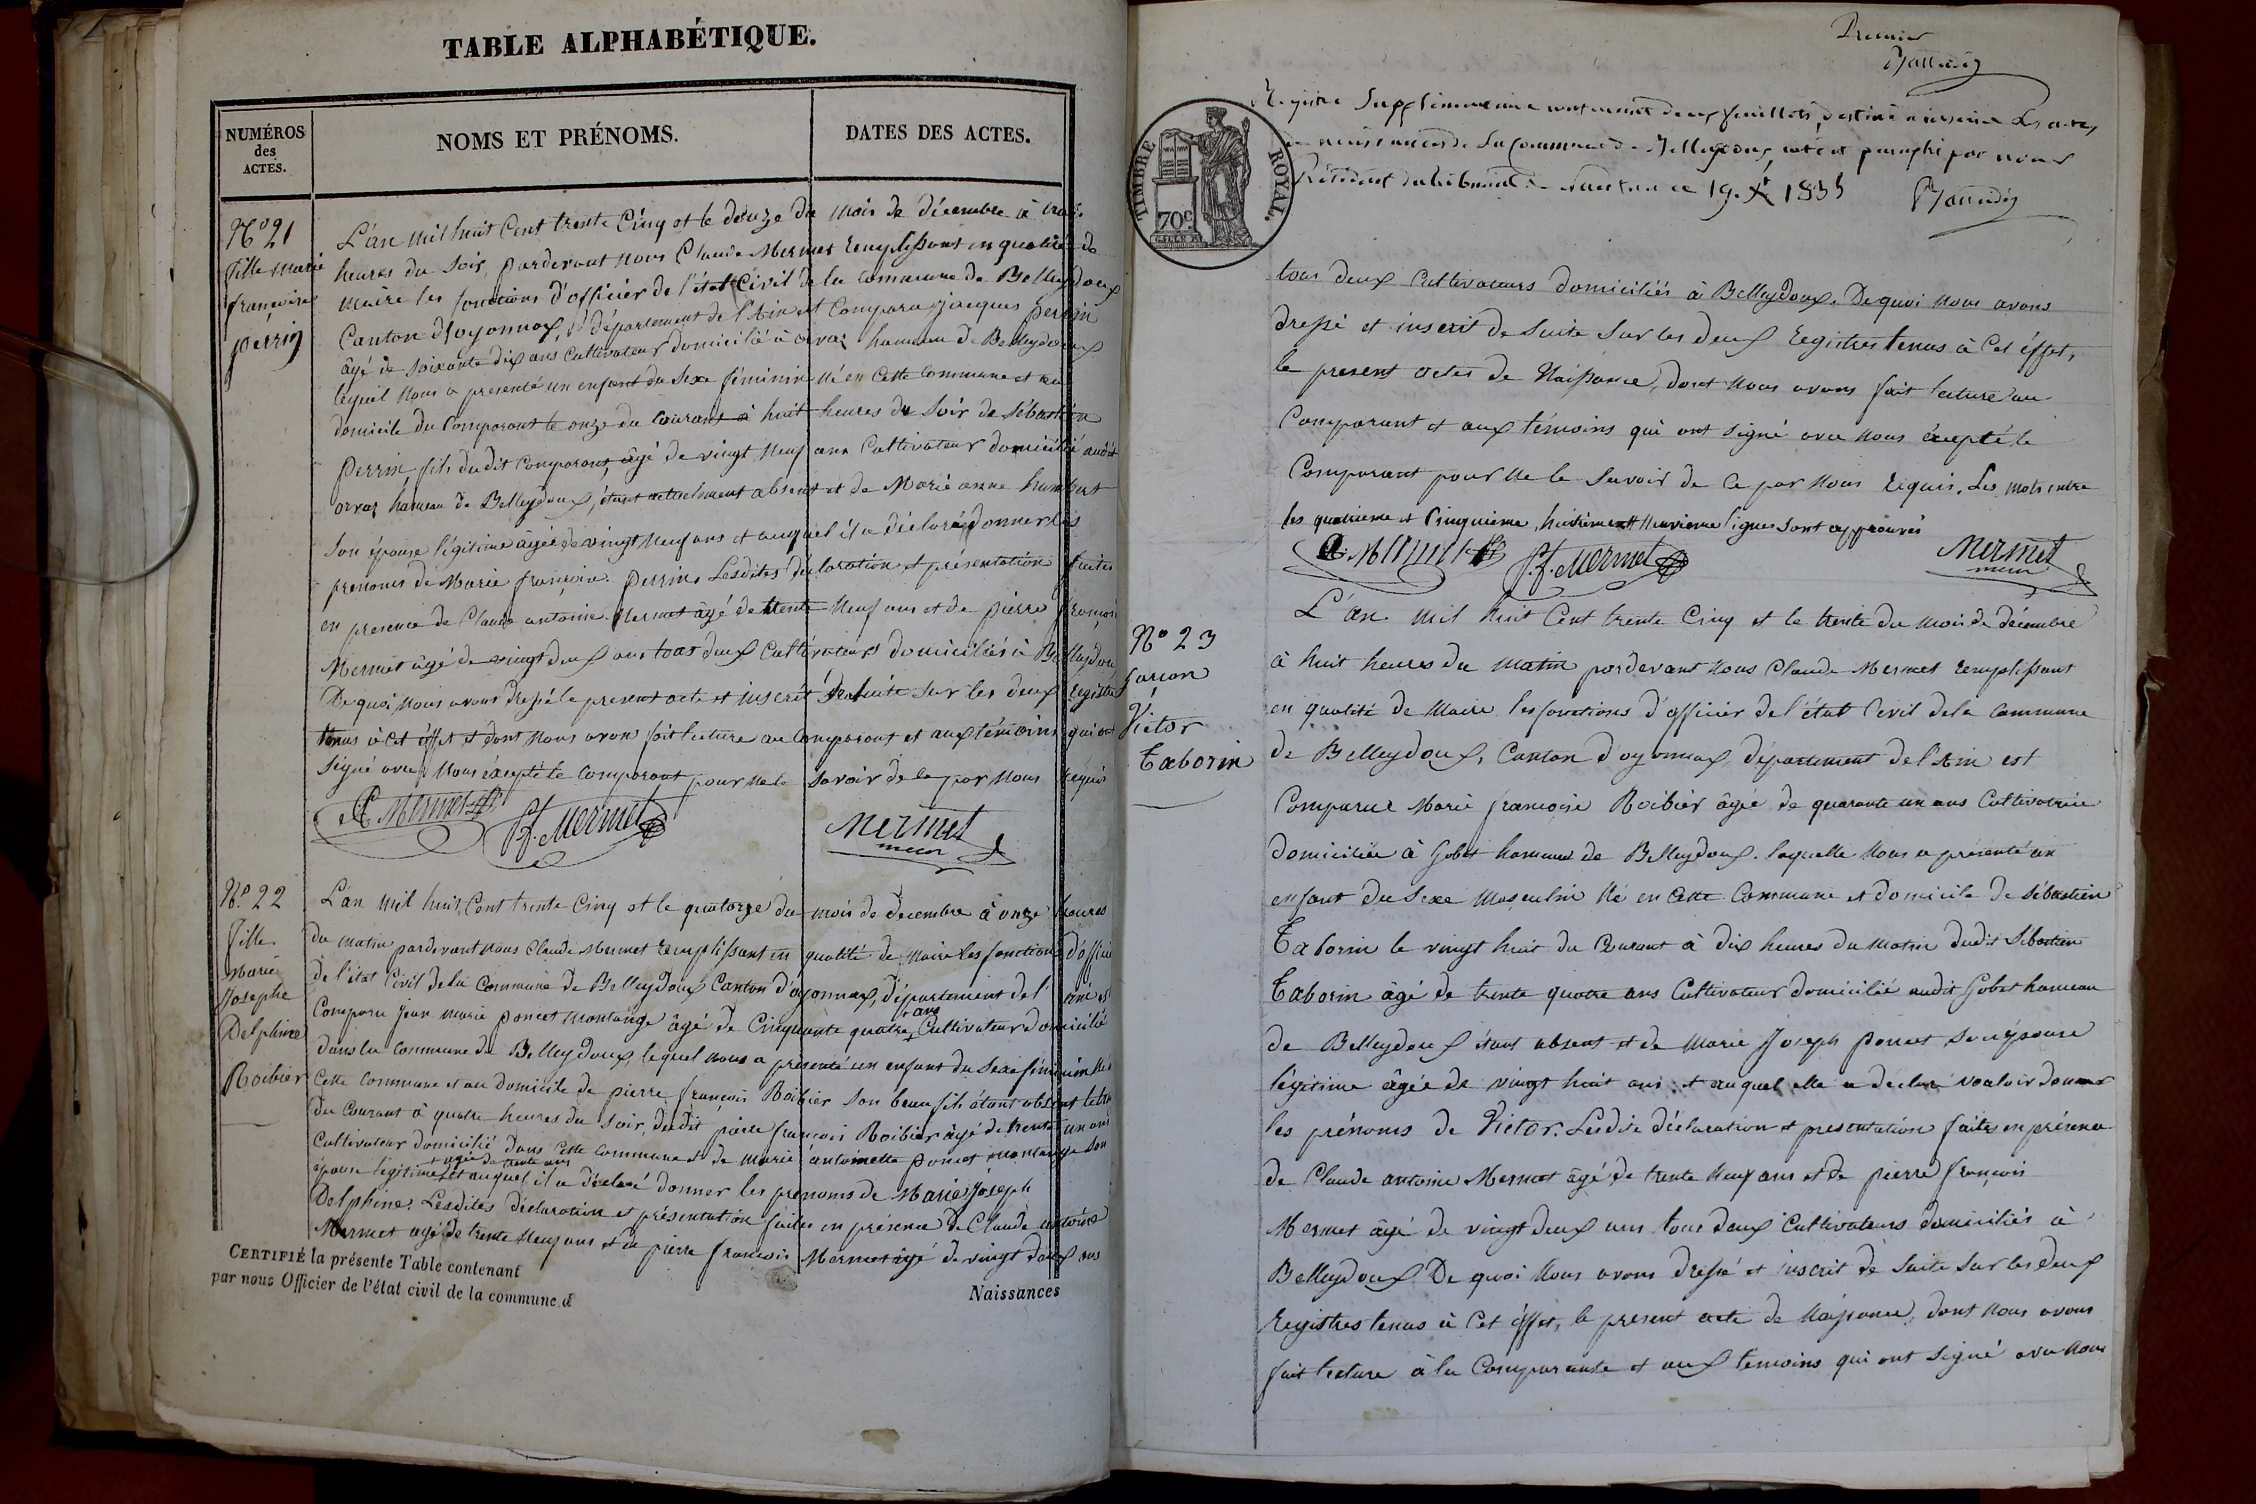 TABLE ALPHABÉTIQUE.
NUMÉROS
des
ACTES.
NOMS ET PRÉNOMS.
DATES DES ACTES.
N.º 21
fille marie
françoise
perrin
L'an mil huit Cent trente Cinq et le douze du mois de décembre à trois
heures du soir, pardevant nous Claude Mermet remplissant en qualité de
maire les fonctions d'officier de l'état Civil de la commune de Belleydoux
Canton d'oyonnax, département de l'Ain est Comparu jacques perrin
âgé de soixante dix ans Cultivateur domicilié à orvaz hameau de Belleydoux
lequel nous a presenté un enfant du sexe féminin né en Cette commune et au
domicile du Comparant le onze du Courant à huit heures du soir de sébastien
perrin fils du dit Comparant, âgé de vingt neuf ans Cultivateur domicilié audit
orvaz hameau de Belleydoux, étant actuelement absent et de Marie anne humbert
son épouse légitime âgée de vingt neuf ans et auquel il a déclaré donner les
prenoms de Marie françoise perrin. Lesdites déclaration et présentation faites
en presence de Claude antoine Mermet âgé de trente neuf ans et de pierre françois
Mermet âgé de vingt deux ans tous deux Cultivateurs domiciliés à Belleydoux
De quoi nous avons dressé le present acte et inscrit de suite sur les deux registres
tenus à Cet éffet et dont nous avons fait lecture au Comparant et aux témoins qui ont
signé avec nous éxcepté le Comparant pour ne le savoir de ce par nous requis
A Mermet P.f. Mermet Mermet
maire
N.º 22
fille
Marie
Josephe
Delphine
Roibier
L'an mil huit Cent trente Cinq et le quatorze du mois de decembre à onze heures
du matin pardevant nous Claude Mermet remplissant en qualité de maire les fonctions d'officier
de l'état Civil de la Commune de Belleydoux Canton d'oyonnax, département de l'ain est
Comparu jean marie poncet montange âgé de Cinquante quatre ans Cultivateur domicilié
dans la commune de Belleydoux, lequel nous a présenté un enfant du sexe féminin né
Cette commune et au domicile de pierre françois Roibier son beau fils étant absent le
du Courant à quatre heures du soir, dudit pierre françois Roibier âgé de trente un ans
Cultivateur domicilié dans Cette commune et de marie antoinette poncet montange son
épouse légitime âgée de trente ans et auquel il a déclaré donner les prenoms de Marie Joseph
Delphine. Lesdites déclaration et présentation faites en présence de Claude antoine
Mermet agé de trente neuf ans et de pierre françois Mermet âgé de vingt deux ans
CERTIFIÉ la présente Table contenant
Naissances
par nous Officier de l'état civil de la commune d
Premier
Registre Supplémentaire contenant deux feuillets, destiné à inscrire les actes
de naissances de la Commune de Belleydoux, coté et paraphé par nous
Président du tribunal de nantua ce 19. Xbre 1835
TIMBRE ROYAL.
70c
tous deux Cultivateurs domiciliés à Belleydoux. De quoi nous avons
dressé et inscrit de suite sur les deux registres tenus à Cet éffet,
le present actes de Naissance, dont nous avons fait lecture au
Comparant et aux témoins qui ont signé avec nous éxcepté le
Comparant pour ne le savoir de ce par nous requis. Les mots entre
les quatrieme et Cinquième, huitieme et neuvieme lignes sont approuvés
A. Mermet P.f. Mermet Mermet
maire
N.º 23
Garcon
Victor
Taborin
L'an mil huit Cent trente Cinq et le trente du mois de décembre
à huit heures du matin pardevant nous Claude Mermet remplissant
en qualité de Maire les fonctions d'officier de l'état Civil de la Commune
de Belleydoux, Canton d'oyonnax département de l'Ain est
Comparue Marie françoise Roibier âgée de quarante un ans Cultivatrice
domiciliée à Gobet hameau de Belleydoux. laquelle nous a présenté un
enfant du sexe masculin né en Cette Commune et domicile de sébastien
Taborin le vingt huit du Courant à dix heures du matin dudit Sébastien
Taborin âgé de trente quatre ans Cultivateur domicilié audit Gobet hameau
de Belleydoux étant absent et de marie Joseph poncet son épouse
légitime âgée de vingt huit ans et auquel elle a déclaré vouloir donner
les prénoms de Victor. Lesdite déclaration et presentation faites en présence
de Claude antoine Mermet âgé de trente neuf ans et de pierre françois
Mermet âgé de vingt deux ans tous deux Cultivateurs domiciliés à
Belleydoux De quoi nous avons dressé et inscrit de suite sur les deux
registres tenus à Cet éffet, le présent acte de Naissance, dont nous avons
fait lecture à la Comparante et aux temoins qui ont signé avec nous